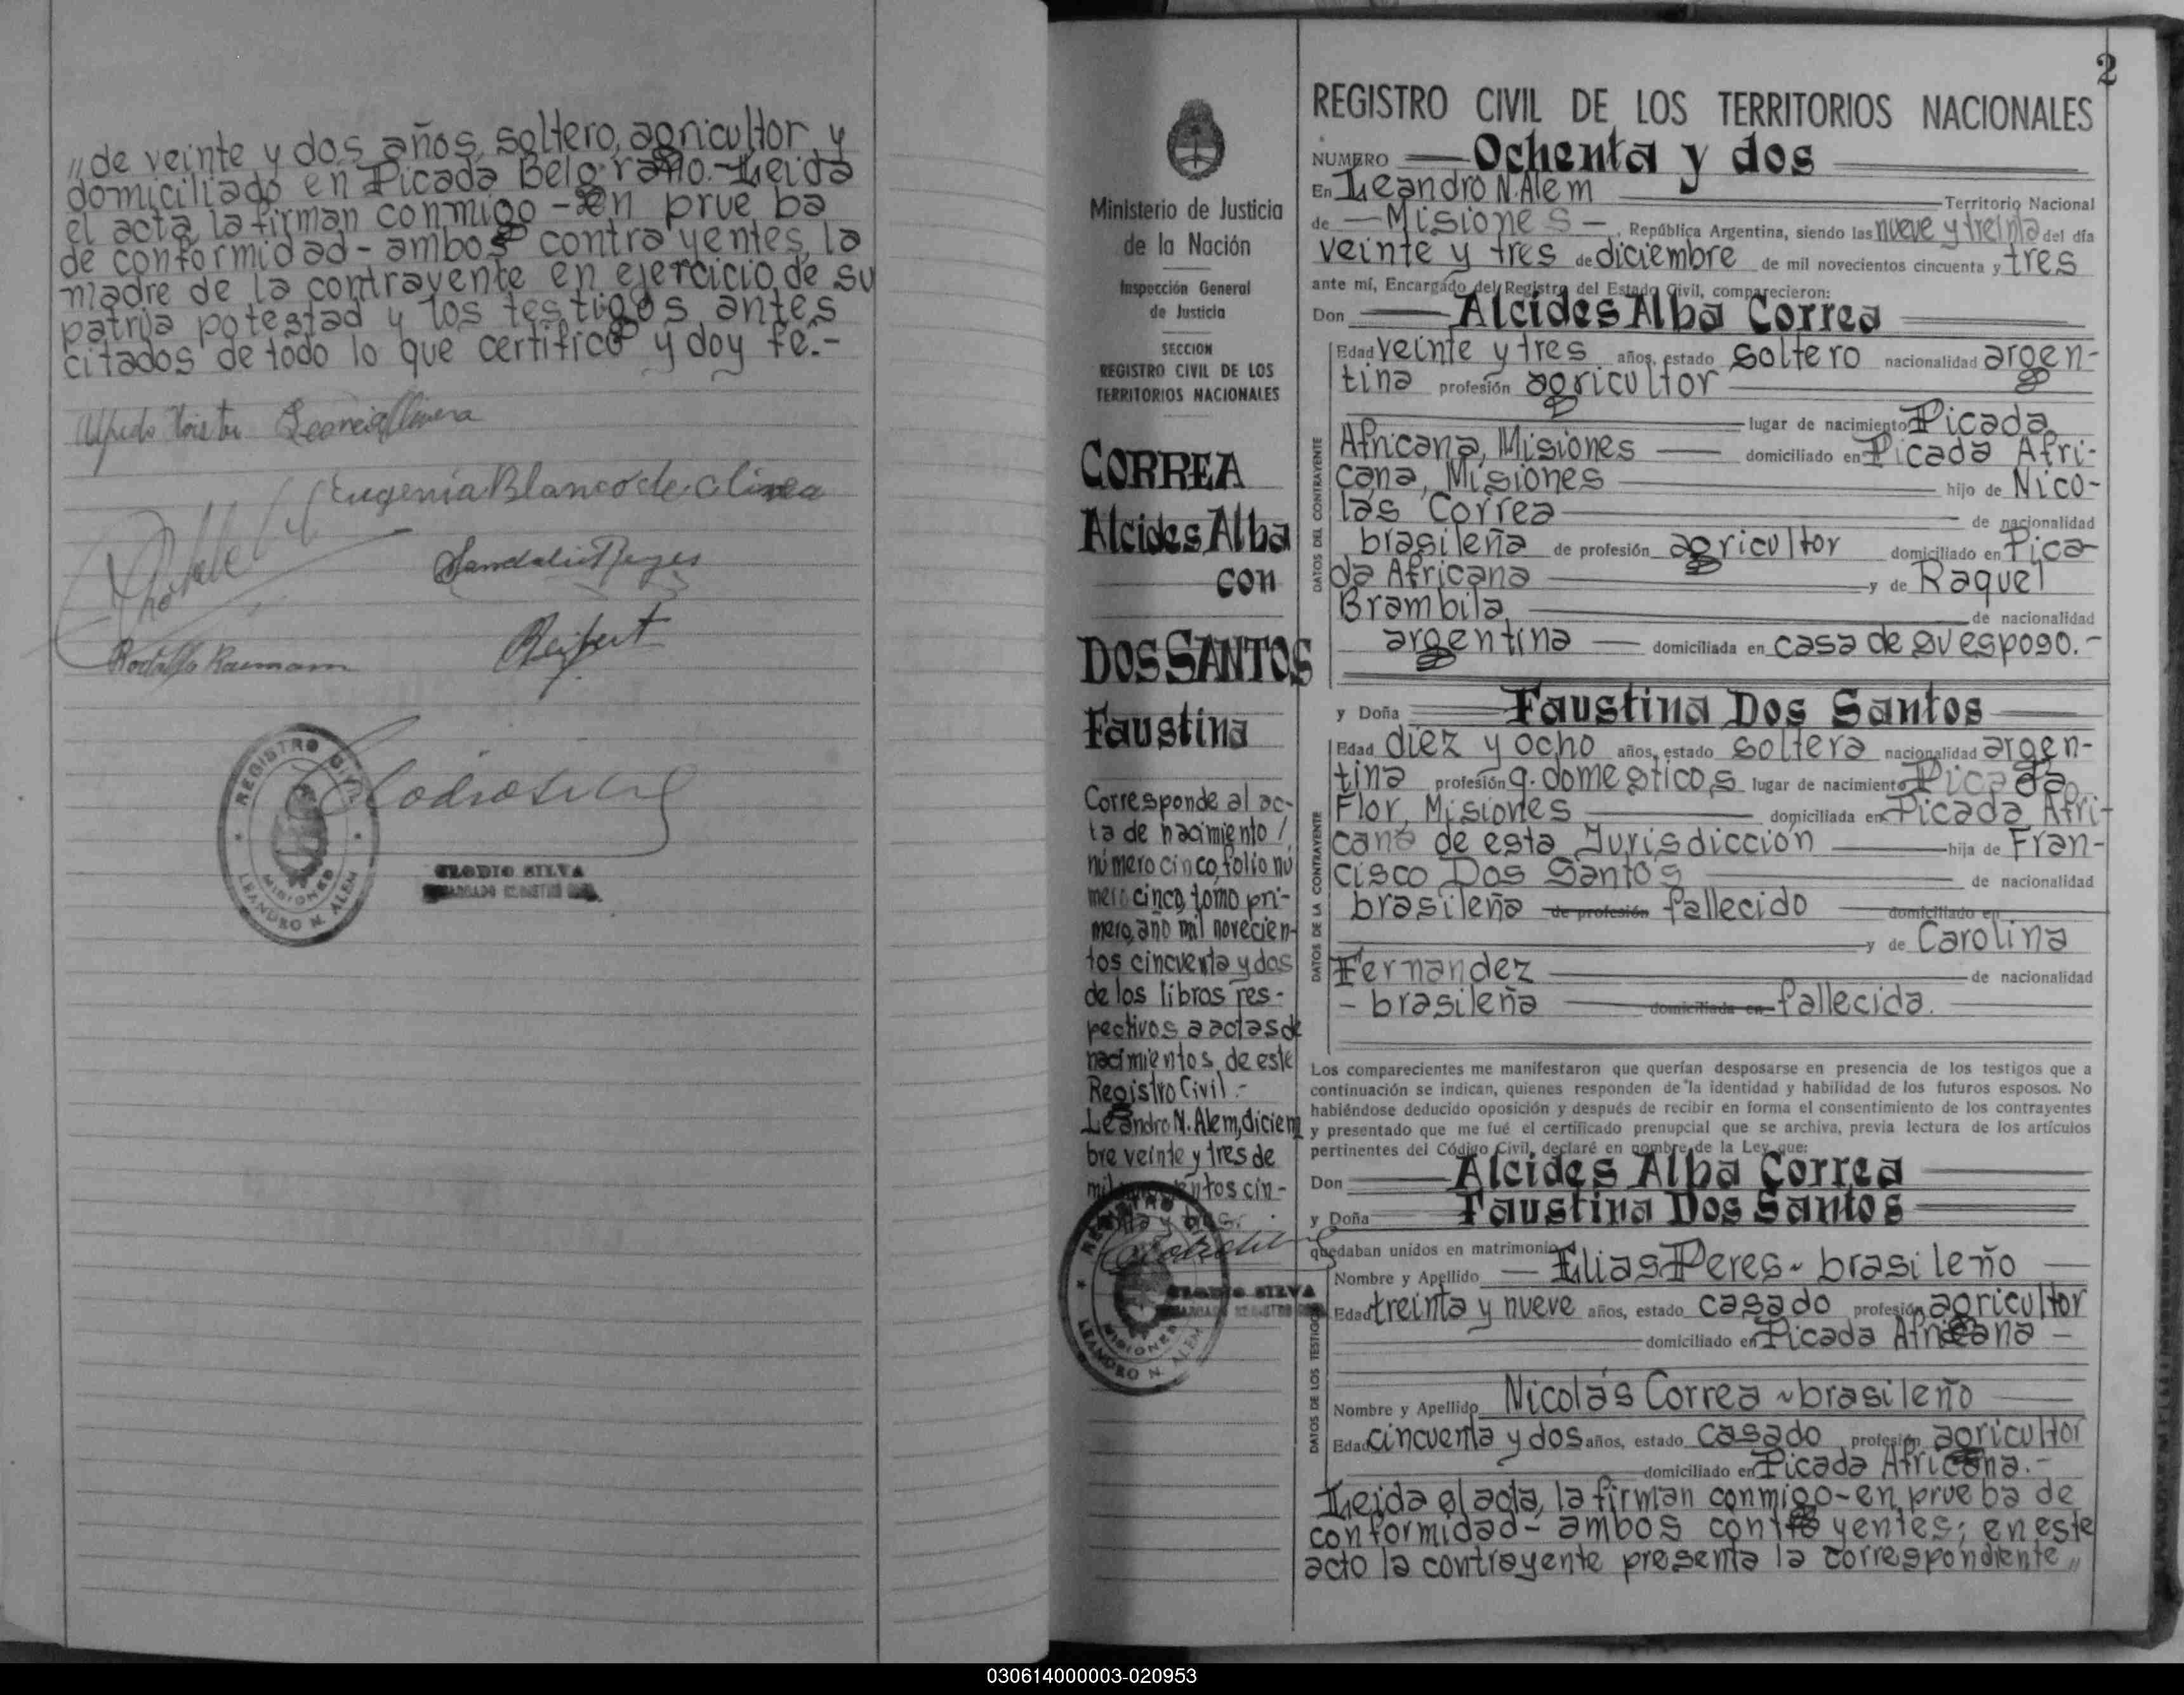 „de veinte y dos años, soltero, agricultor y
domiciliado en Picada Belgrano.- Leida
el acta, la firman conmigo - en prueba
de conformidad - ambos contrayentes, la
madre de la contrayente en ejercicio de su
patria potestad y los testigos antes
citados de todo lo que certifico y doy fé.-
Eugenia Blanco de Olivera
Sandalio Reyes
REGISTRO CIVIL
MISIONES
LEANDRO N. ALEM
ELODIO SILVA
2
Ministerio de Justicia
de la Nación
Inspección General
de Justicia
SECCION
REGISTRO CIVIL DE LOS
TERRITORIOS NACIONALES
CORREA
Alcides Alba
con
DOS SANTOS
Faustina
Corresponde al ac-
ta de nacimiento /
número cinco, folio nú
mero cinco, tomo pri-
mero, año mil novecien-
tos cincuenta y dos
de los libros res-
pectivos a actas de
nacimientos de este
Registro Civil.-
Leandro N. Alem, diciem
bre veinte y tres de
mil novecientos cin-
REGISTRO
MISIONES
LEANDRO N. ALEM
ELODIO SILVA
REGISTRO CIVIL DE LOS TERRITORIOS NACIONALES
NUMERO Ochenta y dos
En Leandro N. Alem Territorio Nacional
de - Misiones -, República Argentina, siendo las nueve y treinta del día
veinte y tres de diciembre de mil novecientos cincuenta y tres
ante mí, Encargado del Registro del Estado Civil, comparecieron:
Don Alcides Alba Correa
DATOS DEL CONTRAYENTE
Edad veinte y tres años, estado soltero nacionalidad argen-
tina profesión agricultor
lugar de nacimiento Picada
Africana, Misiones domiciliado en Picada Afri-
cana, Misiones hijo de Nico-
lás Correa de nacionalidad
brasileña de profesión agricultor domiciliado en Pica-
da Africana y de Raquel
Brambila de nacionalidad
argentina domiciliada en casa de su esposo.-
y Doña Faustina Dos Santos
DATOS DE LA CONTRAYENTE
Edad diez y ocho años, estado soltera nacionalidad argen-
tina profesión q. domesticos lugar de nacimiento Picada
Flor, Misiones domiciliada en Picada Afri-
cana de esta Jurisdicción hija de Fran-
cisco Dos Santos de nacionalidad
brasileña de profesión fallecido domiciliado en
y de Carolina
Fernandez de nacionalidad
- brasileña domiciliada en fallecida.
Los comparecientes me manifestaron que querían desposarse en presencia de los testigos que a
continuación se indican, quienes responden de la identidad y habilidad de los futuros esposos. No
habiéndose deducido oposición y después de recibir en forma el consentimiento de los contrayentes
y presentado que me fué el certificado prenupcial que se archiva, previa lectura de los artículos
pertinentes del Código Civil, declaré en nombre de la Ley que:
Don Alcides Alba Correa
y Doña Faustina Dos Santos
quedaban unidos en matrimonio
DATOS DE LOS TESTIGOS
Nombre y Apellido Elias Peres - brasileño
Edad treinta y nueve años, estado casado profesión agricultor
domiciliado en Picada Africana -
Nombre y Apellido Nicolás Correa - brasileño
Edad cincuenta y dos años, estado casado profesión agricultor
domiciliado en Picada Africana.-
Leida el acta, la firman conmigo - en prueba de
conformidad - ambos contrayentes; en este
acto la contrayente presenta la correspondiente„
030614000003-020953